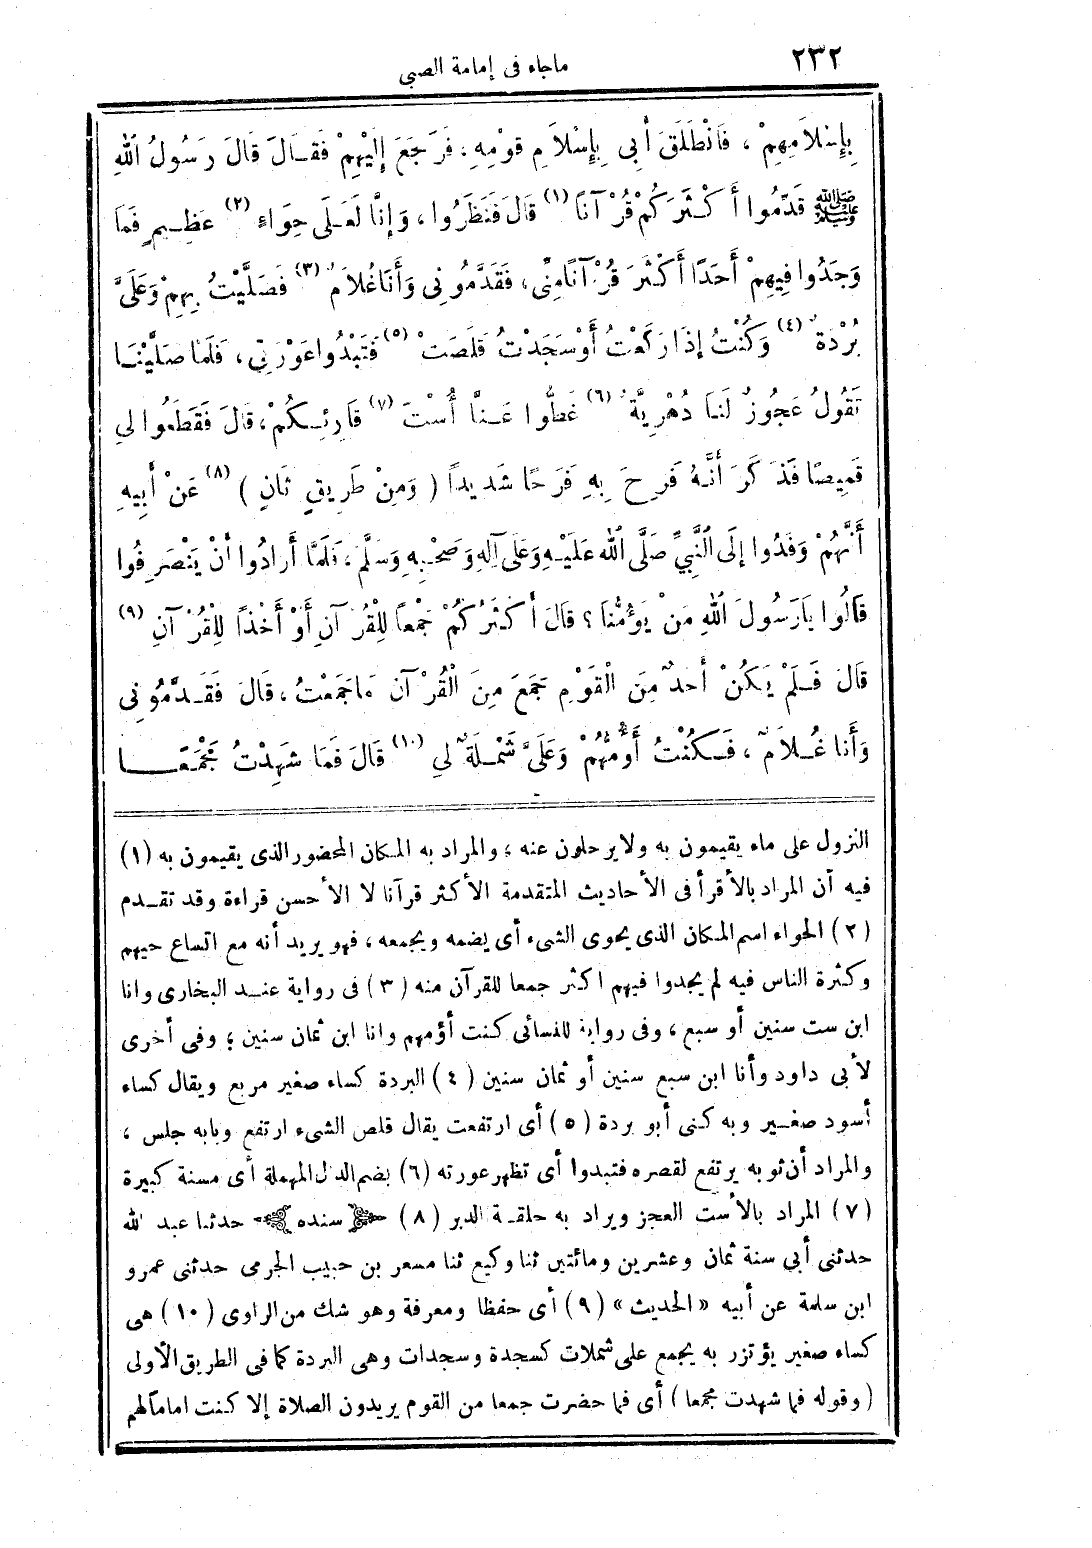 ٢٣٢
ماجاء فى إمامة الصبى
بِإِسْلاَمِهِمْ ، فَانْطَلَقَ أَبِى بِإِسْلاَمِ قَوْمِهِ، فَرَجَعَ إِلَيْهِمْ فَقَالَ قَالَ رَسُولُ اللهِ
ﷺ قَدِّمُوا أَكْثَرَكُمْ قُرْآنًا (١) قَالَ فَنَظَرُوا ، وَإِنَّا لَعَلَى حِوَاءٍ (٢) عَظِيمٍ فَمَا
وَجَدُوا فِيهِمْ أَحَدًا أَكْثَرَ قُرْآنًا مِنِّى، فَقَدَّمُونِى وَأَنَا غُلاَمٌ (٣) فَصَلَّيْتُ بِهِمْ وَعَلَىَّ
بُرْدَةٌ (٤) وَكُنْتُ إِذَا رَكَعْتُ أَوْ سَجَدْتُ قَلَصَتْ (٥) فَتَبْدُوا عَوْرَتِى ، فَلَمَّا صَلَّيْنَا
تَقُولُ عَجُوزٌ لَنَا دُهْرِيَّةٌ (٦) غَطُّوا عَنَّا أُسْتَ (٧) قَارِئِكُمْ، قَالَ فَقَطَعُوا لِى
قَمِيصًا فَذَكَرَ أَنَّهُ فَرِحَ بِهِ فَرَحًا شَدِيدًا ( وَمِنْ طَرِيقٍ ثَانٍ ) (٨) عَنْ أَبِيهِ
أَنَّهُمْ وَفَدُوا إِلَى النَّبِىِّ صَلَّى اللهُ عَلَيْهِ وَعَلَى آلِهِ وَصَحْبِهِ وَسَلَّمَ ، فَلَمَّا أَرَادُوا أَنْ يَنْصَرِفُوا
قَالُوا يَارَسُولَ اللهِ مَنْ يَؤُمُّنَا ؟ قَالَ أَكْثَرُكُمْ جَمْعًا لِلْقُرْآنِ أَوْ أَخْذًا لِلْقُرْآنِ (٩)
قَالَ فَلَمْ يَكُنْ أَحَدٌ مِنَ الْقَوْمِ جَمَعَ مِنَ الْقُرْآنِ مَا جَمَعْتُ ، قَالَ فَقَدَّمُونِى
وَأَنَا غُلاَمٌ ، فَكُنْتُ أَؤُمُّهُمْ وَعَلَىَّ شَمْلَةٌ لِى (١٠) قَالَ فَمَا شَهِدْتُ مَجْمَعًا
النزول على ماء يقيمون به ولا يرحلون عنه ؛ والمراد به المكان المحضور الذى يقيمون به (١)
فيه أن المراد بالأقرأ فى الأحاديث المتقدمة الأكثر قرآنا لا الأحسن قراءة وقد تقدم
(٢) الحواء اسم المكان الذى يحوى الشىء أى يضمه ويجمعه ، فهو يريد أنه مع اتساع حيهم
وكثرة الناس فيه لم يجدوا فيهم اكثر جمعا للقرآن منه (٣) فى رواية عند البخارى وانا
ابن ست سنين أو سبع ، وفى رواية للنسائى كنت أؤمهم وانا ابن ثمان سنين ؛ وفى أخرى
لأبى داود وأنا ابن سبع سنين أو ثمان سنين (٤) البردة كساء صغير مربع ويقال كساء
أسود صغير وبه كنى أبو بردة (٥) أى ارتفعت يقال قلص الشىء ارتفع وبابه جلس ،
والمراد أن ثوبه يرتفع لقصره فتبدوا أى تظهر عورته (٦) بضم الدال المهملة أى مسنة كبيرة
(٧) المراد بالأست العجز ويراد به حلقة الدبر (٨) سنده حدثنا عبد الله
حدثنى أبي سنة ثمان وعشرين ومائتين ثنا وكيع ثنا مسعر بن حبيب الجرمى حدثنى عمرو
ابن سلمة عن أبيه «الحديث» (٩) أى حفظا ومعرفة وهو شك من الراوى (١٠) هى
كساء صغير يؤتزر به يجمع على شملات كسجدة وسجدات وهى البردة كما فى الطريق الأولى
(وقوله فما شهدت مجمعا) أى فما حضرت جمعا من القوم يريدون الصلاة إلا كنت اماما لهم